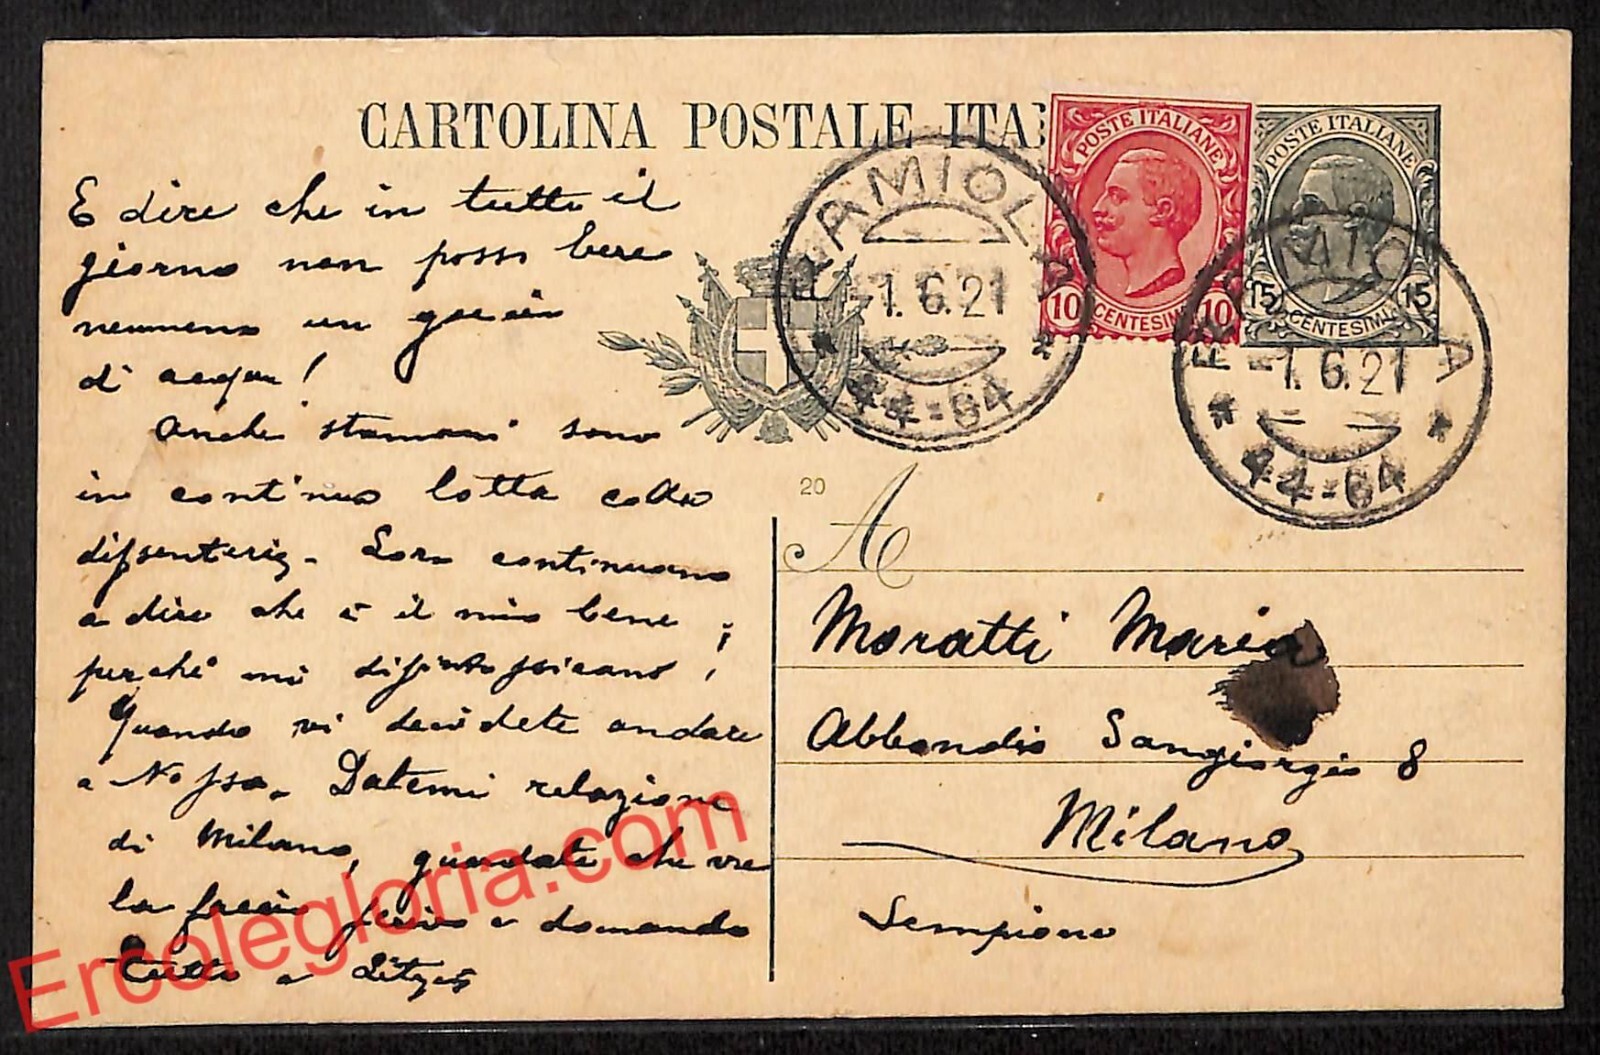 CARTOLINA POSTALE ITA
POSTE ITALIANE
10 CENTESIMI 10
POSTE ITALIANE
15 CENTESIMI 15
RAMIOLA
1.6.21
* 44-64 *
RAMIOLA
1.6.21
* 44-64 *
E dire che in tutto il
giorno non posso bere
nemmeno un
di acqua!
Anche stamani sono
in continua lotta colla
dissenteria. Loro continuano
a dire che è il mio bene,
perché mi disintossicano!
Quando vi decidete andare
a Nossa. Datemi relazione
di Milano, guardate che ve
la faccio e domando
tutto a
20
A
Moratti Maria
Abbondio Sangiorgio 8
Milano
Sempione
Ercolegloria.com